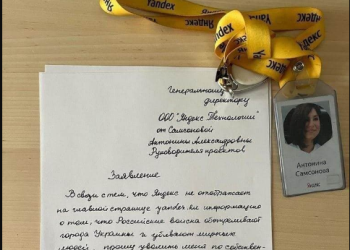 Яндекс
Yandex
Яндекс
Yandex
Генеральному
директору
ООО "Яндекс Технологии"
от Самсоновой
Антонины Александровны
Руководителя проектов
Антонина
Самсонова
Яндекс
Заявление
В связи с тем, что Яндекс не отображает
на главной странице yandex.ru информацию
о том, что Российские войска обстреливают
города Украины и убивают мирных
людей, прошу уволить меня по собствен-